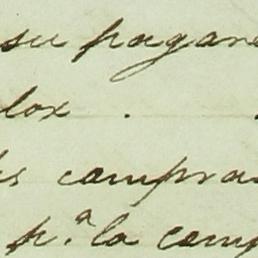 su pagare
dox .
s compra
p.ª la comp